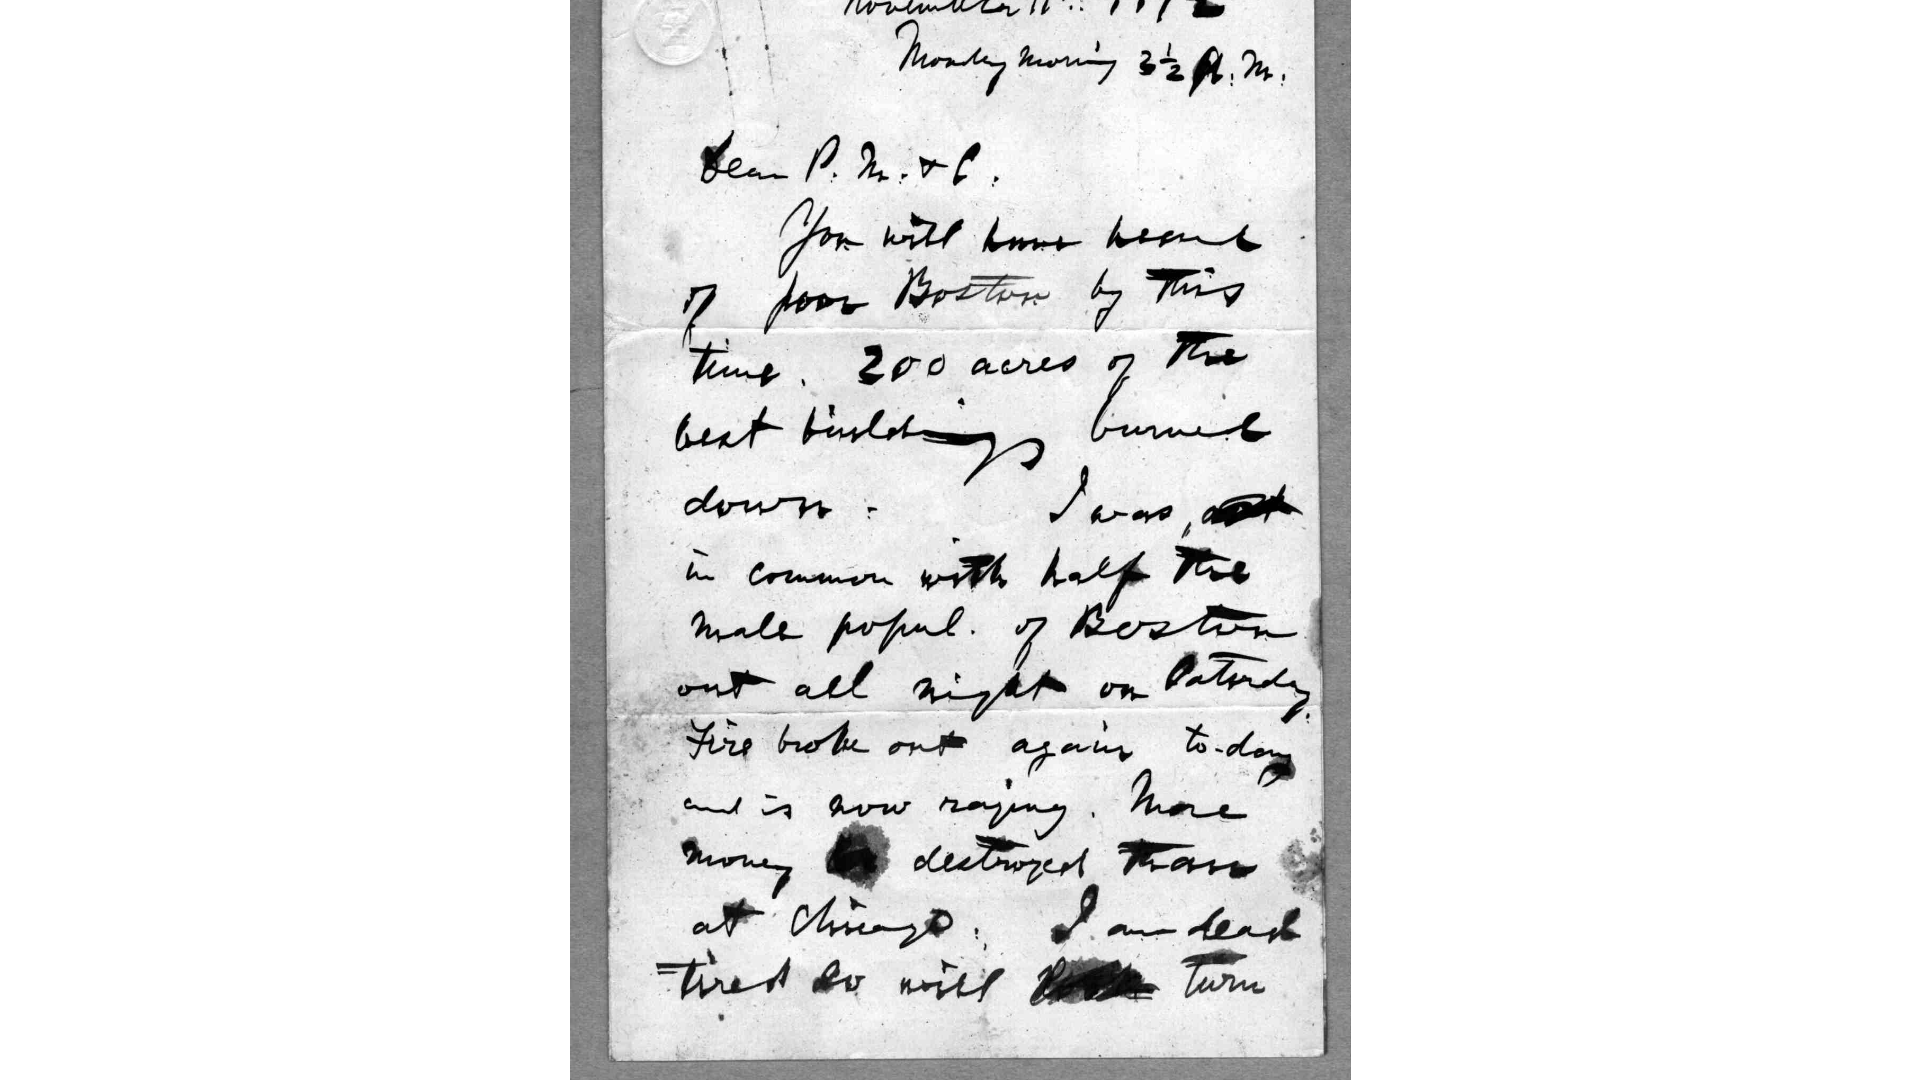 November 11th. 1872
Monday morning 3½ A. M.
Dear P. M. & C.
You will have heard
of poor Boston by this
time. 200 acres of the
best buildings burned
down. I was,
in common with half the
male popul. of Boston
out all night on Saturday.
Fire broke out again to-day
and is now raging. More
money destroyed than
at Chicago. I am dead
tired so will turn